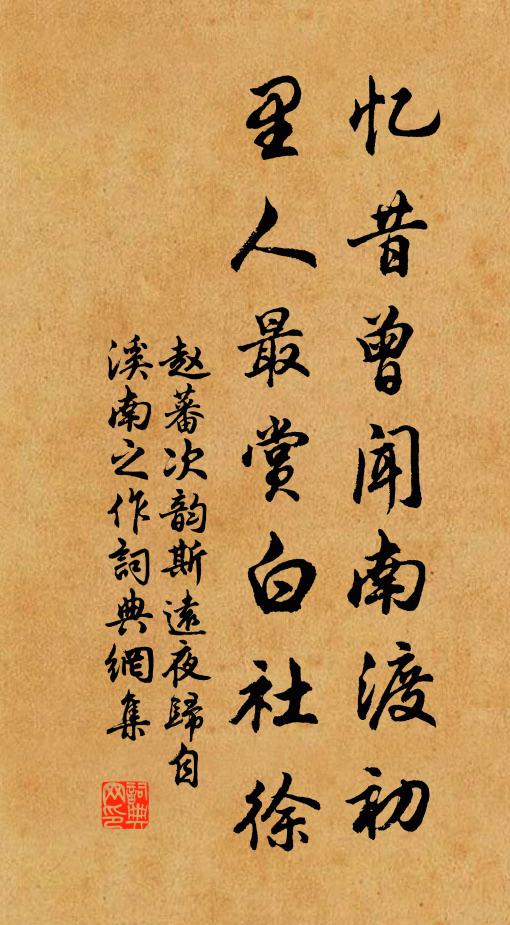 忆昔曾闻南渡初
里人最赏白社徐
赵蕃次韵斯遠夜歸自
溪南之作詞典網集
詞典
网印